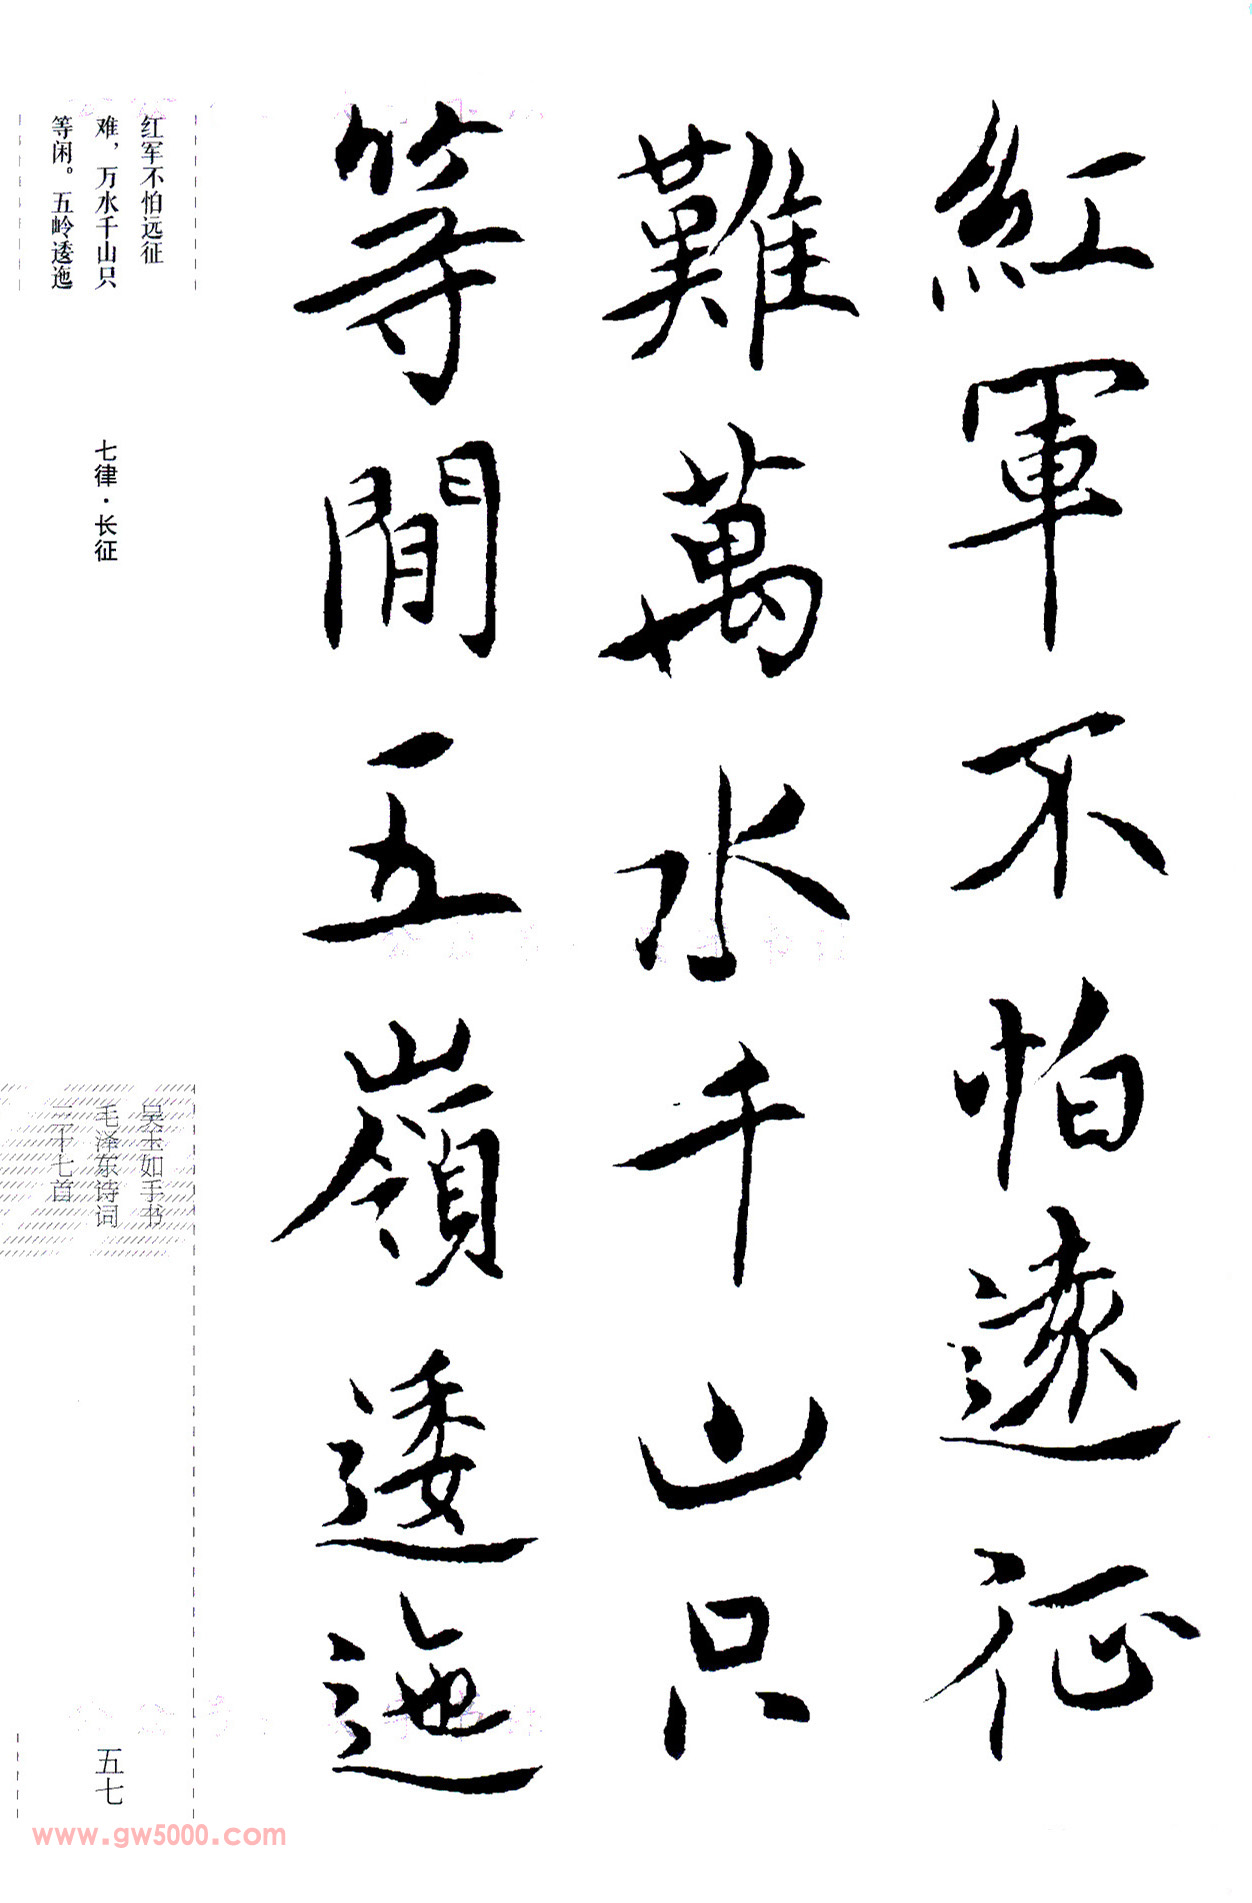 紅軍不怕遠征
難萬水千山只
等閒五嶺逶迤
红军不怕远征
难，万水千山只
等闲。五岭逶迤
七律·长征
吴玉如手书
毛泽东诗词
三十七首
五七
www.gw5000.com